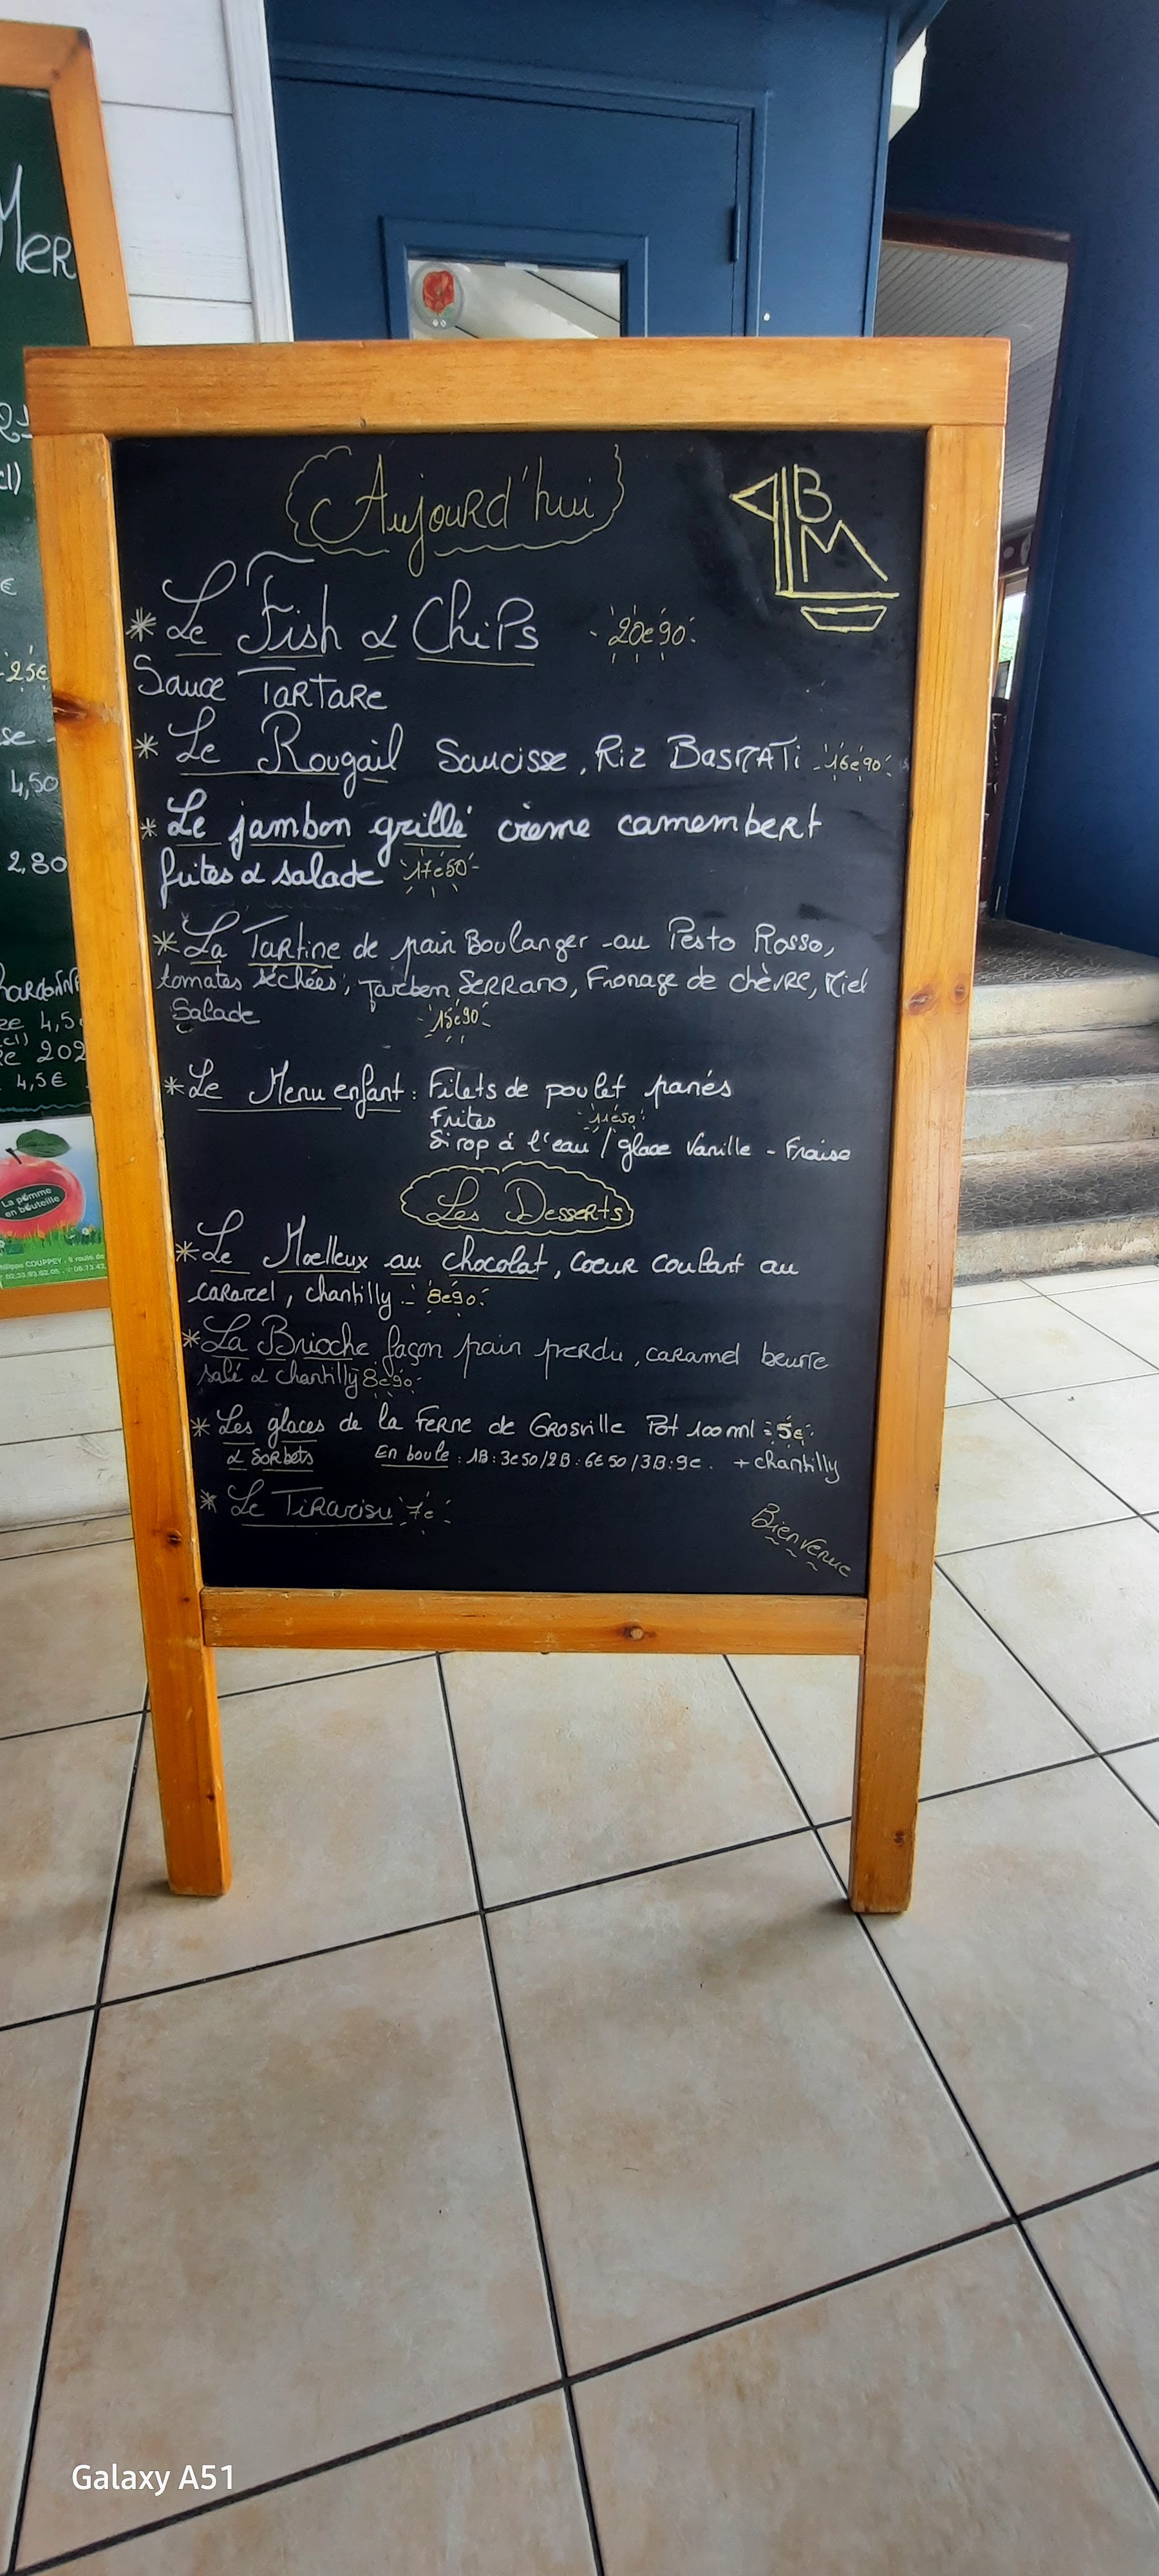 MER
25€
4,50
2,80
4,5
202
4,5€
La pomme
en bouteille
Aujourd'hui
BM
* Le Fish & Chips 20€90
Sauce Tartare
* Le Rougail Saucisse, Riz Basmati 16€90
* Le jambon grillé crème camembert
frites & salade 17€50
* La Tartine de pain Boulanger au Pesto Rosso,
tomates séchées, Jambon Serrano, Fromage de chèvre, Miel
Salade 15€90
* Le Menu enfant : Filets de poulet panés
Frites 11€50
Sirop à l'eau / glace Vanille - Fraise
Les Desserts
* Le Moelleux au chocolat, Coeur coulant au
caramel, chantilly 8€90
* La Brioche façon pain perdu, caramel beurre
salé & chantilly 8€90
* Les glaces de la Ferme de Grosville Pot 100 ml = 5€
& Sorbets En boule : 1B : 3€50 / 2B : 6€50 / 3B : 9€. + chantilly
* Le Tiramisu 7€
Bienvenue
Galaxy A51